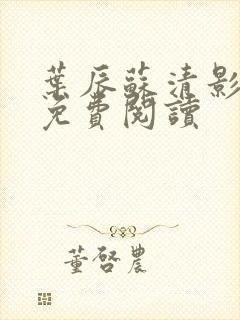 葉辰蘇清影
免費閱讀
董啓農